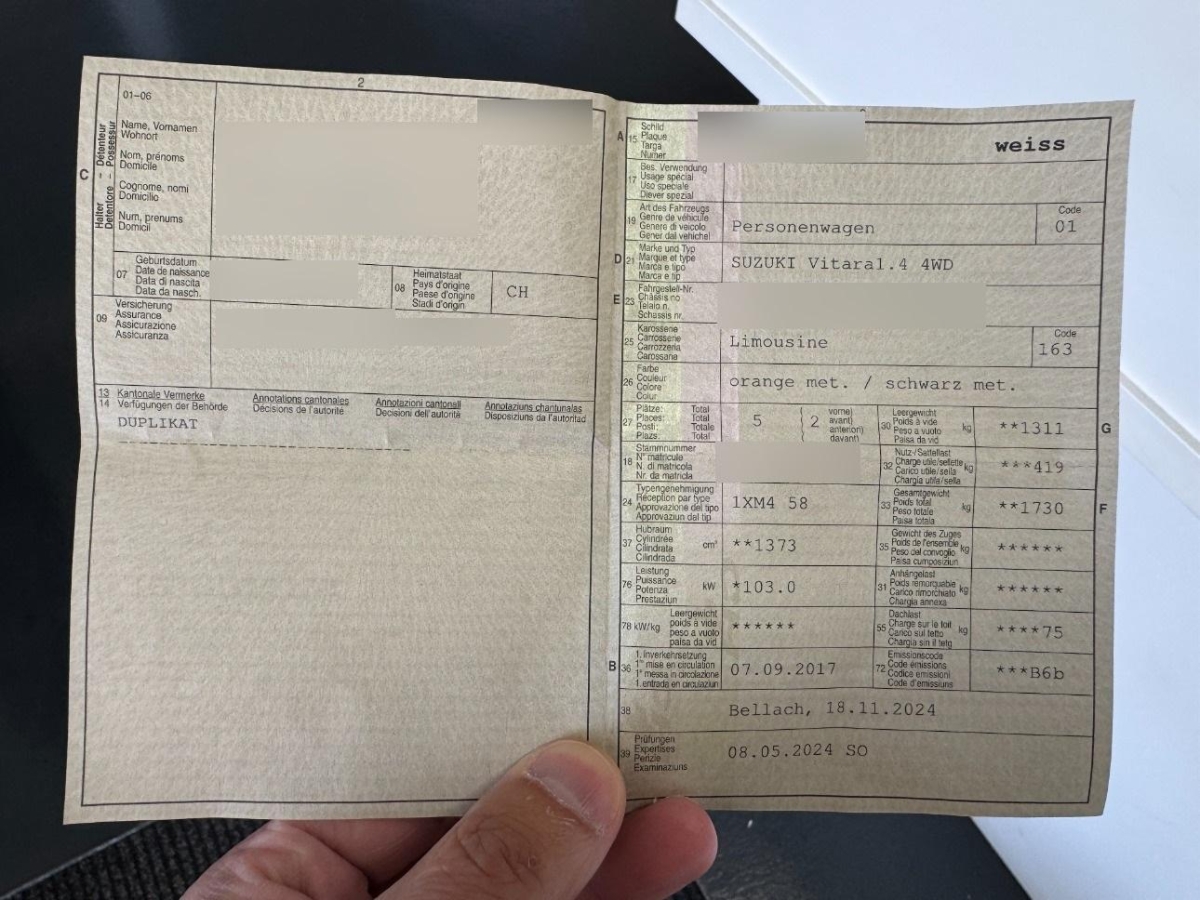 2
01-06
Halter - Détenteur
Detentore - Possessur
C
Name, Vornamen
Wohnort
Nom, prénoms
Domicile
Cognome, nomi
Domicilio
Num, prenums
Domicil
07
Geburtsdatum
Date de naissance
Data di nascita
Data da nasch.
08
Heimatstaat
Pays d'origine
Paese d'origine
Stadi d'origin
CH
09
Versicherung
Assurance
Assicurazione
Assicuranza
13 Kantonale Vermerke Annotations cantonales Annotazioni cantonali Annotaziuns chantunalas
14 Verfügungen der Behörde Décisions de l'autorité Decisioni dell'autorità Disposiziuns da l'autoritad
DUPLIKAT
A 15
Schild
Plaque
Targa
Numer
weiss
17
Bes. Verwendung
Usage spécial
Uso speciale
Diever spezial
19
Art des Fahrzeugs
Genre de véhicule
Genere di veicolo
Gener dal vehichel
Personenwagen
Code
01
D 21
Marke und Typ
Marque et type
Marca e tipo
Marca e tip
SUZUKI Vitara1.4 4WD
E 23
Fahrgestell-Nr.
Châssis no
Telaio n.
Schassis nr.
25
Karosserie
Carrosserie
Carrozzeria
Carossaria
Limousine
Code
163
26
Farbe
Couleur
Colore
Colur
orange met. / schwarz met.
27
Plätze: Total
Places: Total
Posti: Totale
Plazs: Total
5
2
vorne)
avant)
anteriori)
davant)
30
Leergewicht
Poids à vide
Peso a vuoto
Paisa da vid
kg
**1311
G
18
Stammnummer
N° matricule
N. di matricola
Nr. da matricla
32
Nutz-/Sattellast
Charge utile/sellette
Carico utile/sella
Chargia utila/sella
kg
***419
24
Typengenehmigung
Réception par type
Approvazione del tipo
Approvaziun dal tip
1XM4 58
33
Gesamtgewicht
Poids total
Peso totale
Paisa totala
kg
**1730
F
37
Hubraum
Cylindrée
Cilindrata
Cilindrada
cm³
**1373
35
Gewicht des Zuges
Poids de l'ensemble
Peso del convoglio
Paisa cumposiziun
kg
******
76
Leistung
Puissance
Potenza
Prestaziun
kW
*103.0
31
Anhängelast
Poids remorquable
Carico rimorchiato
Chargia annexa
kg
******
78 kW/kg
Leergewicht
poids à vide
peso a vuoto
paisa da vid
******
55
Dachlast
Charge sur le toit
Carico sul tetto
Chargia sin il tetg
kg
****75
B 36
1. Inverkehrsetzung
1re mise en circulation
1a messa in circolazione
1. entrada en circulaziun
07.09.2017
72
Emissionscode
Code émissions
Codice emissioni
Code d'emissiuns
***B6b
38
Bellach, 18.11.2024
39
Prüfungen
Expertises
Perizie
Examinaziuns
08.05.2024 SO